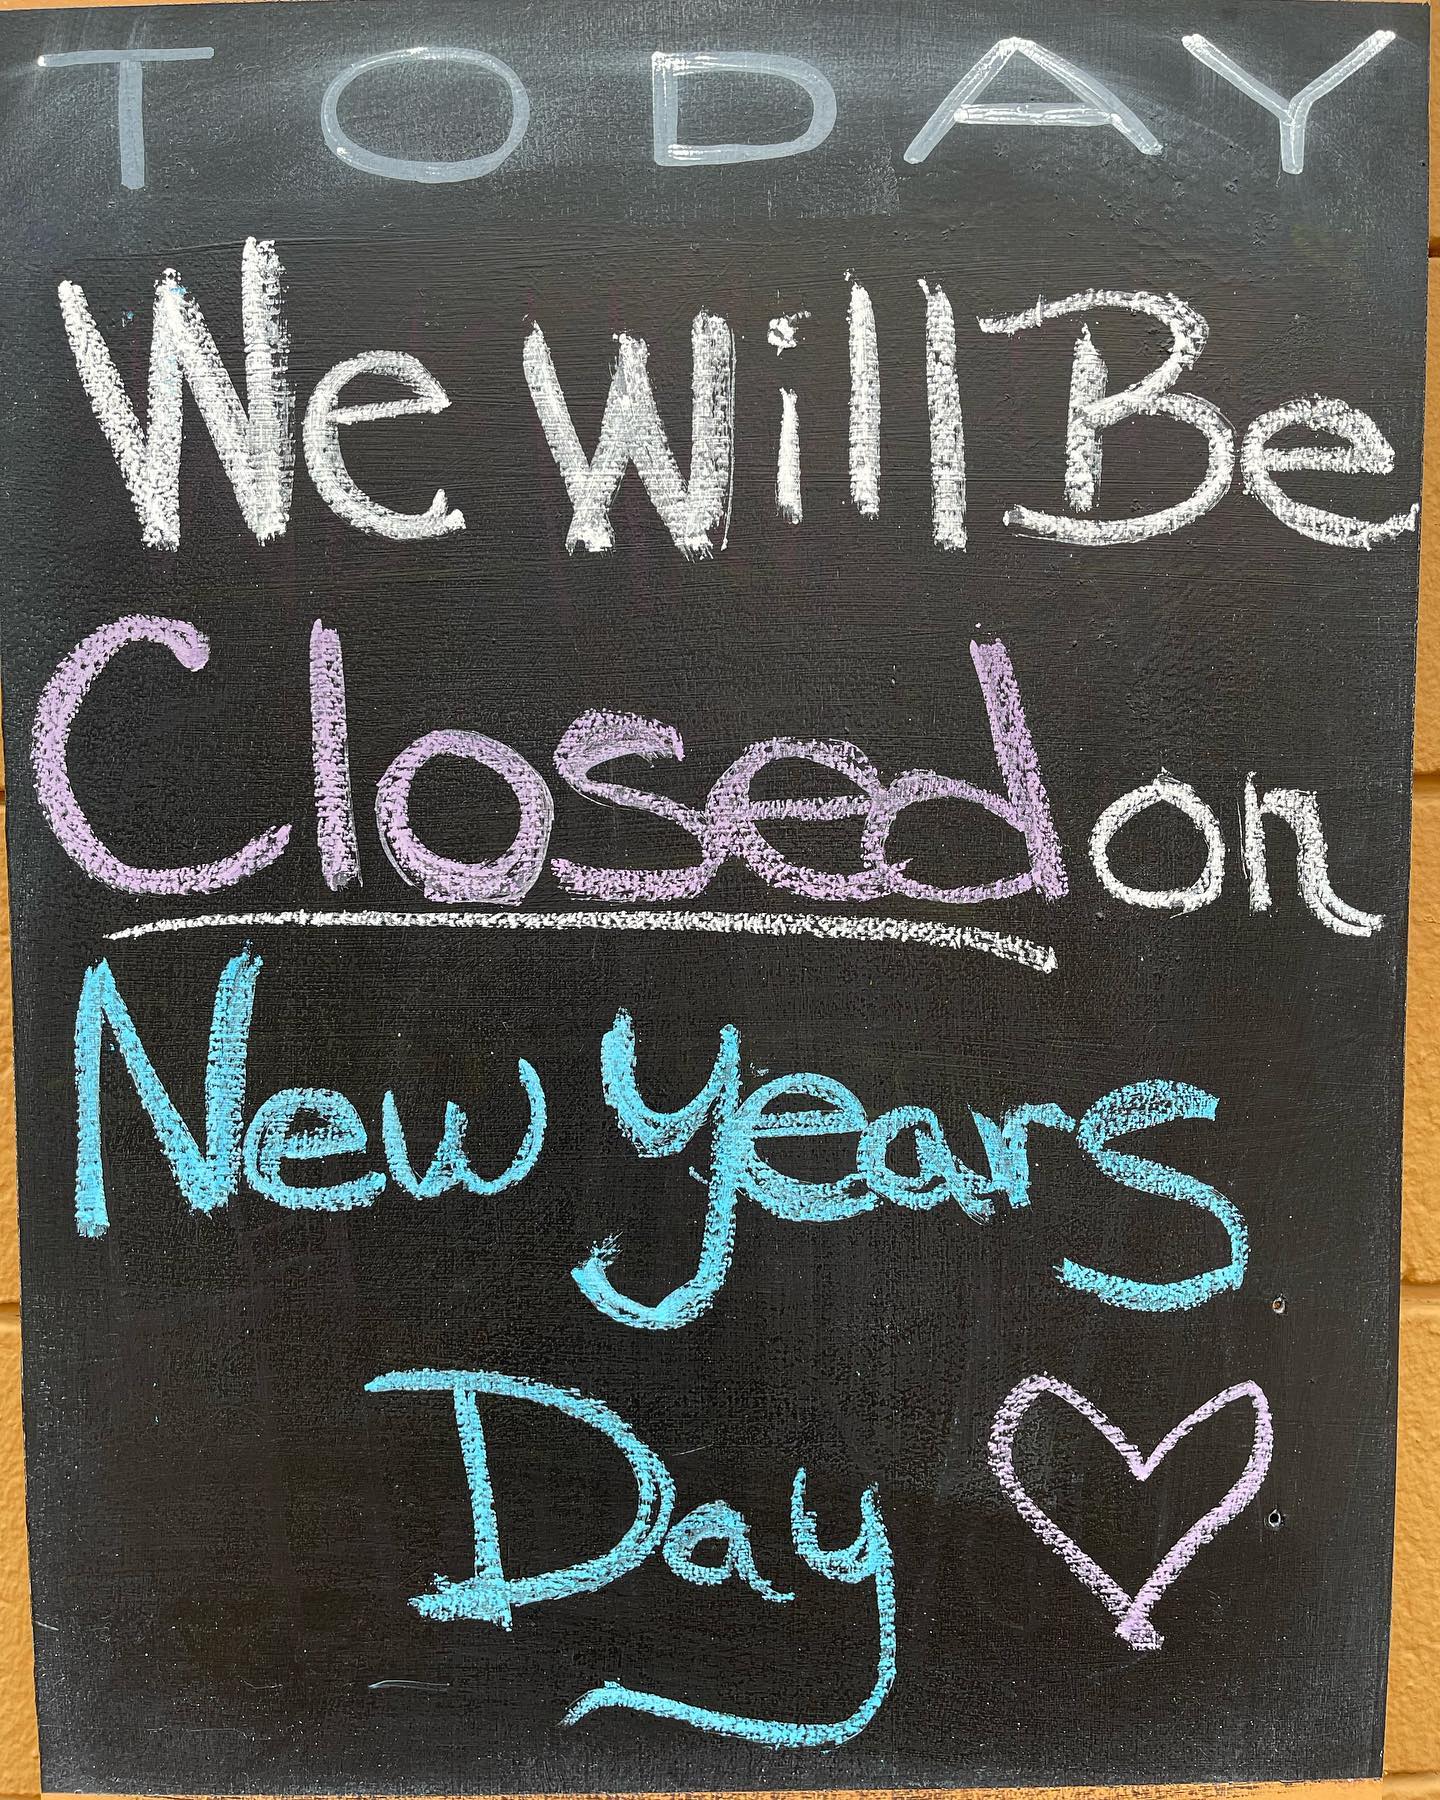 TODAY
We Will Be
Closed on
New years
Day